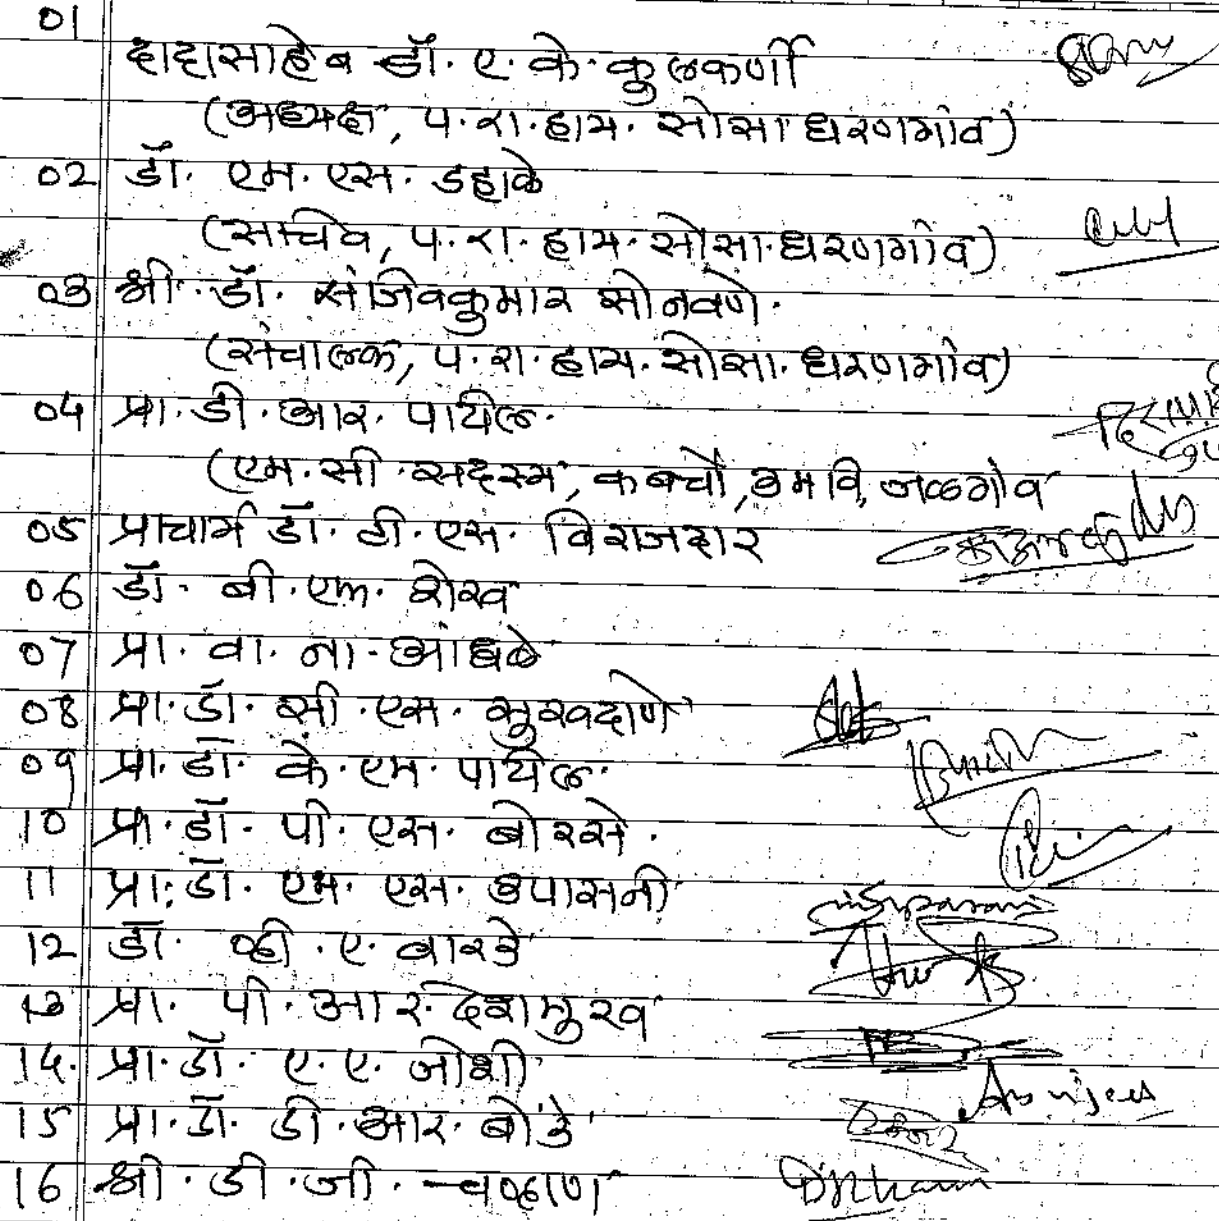 01
दादासाहेब डॉ. ए. के. कुलकर्णी
(अध्यक्ष, प. रा. हाय. सोसा धरणगांव)
02 डॉ. एम. एस. डहाळे
(सचिव, प. रा. हाय. सोसा. धरणगांव)
03 श्री. डॉ. संजिवकुमार सोनवणे.
(संचालक, प. रा. हाय. सोसा. धरणगांव)
04 प्रा. डी. आर. पाटील.
(एम. सी. सदस्य, कबचौ, उमवि, जळगांव
05 प्राचार्य डॉ. टी. एस. बिराजदार
06 डॉ. बी. एम. शेख
07 प्रा. वा. ना. आंधळे
08 प्रा. डॉ. सी. एस. सुखदाणे
09 प्रा. डॉ. के. एम. पाटील.
10 प्रा. डॉ. पी. एस. बोरसे.
11 प्रा. डॉ. एम. एस. उपासनी
12 डॉ. व्ही. ए. वारडे
13 प्रा. पी. आर. देशमुख
14. प्रा. डॉ. ए. ए. जोशी
15 प्रा. डॉ. डी. आर. बोंडे
16 श्री. डी. जी. चव्हाण